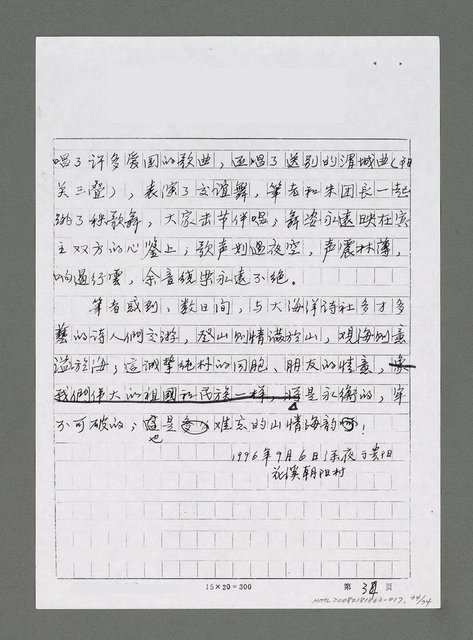 唱了许多爱国的歌曲，还唱了送别的渭城曲(阳
关三叠)，表演了交谊舞，筆者和朱团长一起
跳了秧歌舞，大家击节伴唱；舞姿永遠映在賓
主双方的心鉴上；歌声划過夜空，声震林薄，
响遏行雲，余音绕梁永遠不绝。
筆者感到，数日间，与大海洋诗社多才多
藝的诗人們交游，登山则情满於山，观海则意
溢於海；這诚挚纯朴的同胞、朋友的情意，
我們伟大的祖國和民族一样，将是永衡的，牢
不可破的；這也是难忘的山情海韵！
1996年9月6日深夜于贵阳
花溪朝阳村
15×20=300
第34頁
NMTL20080181863-017, 34/34